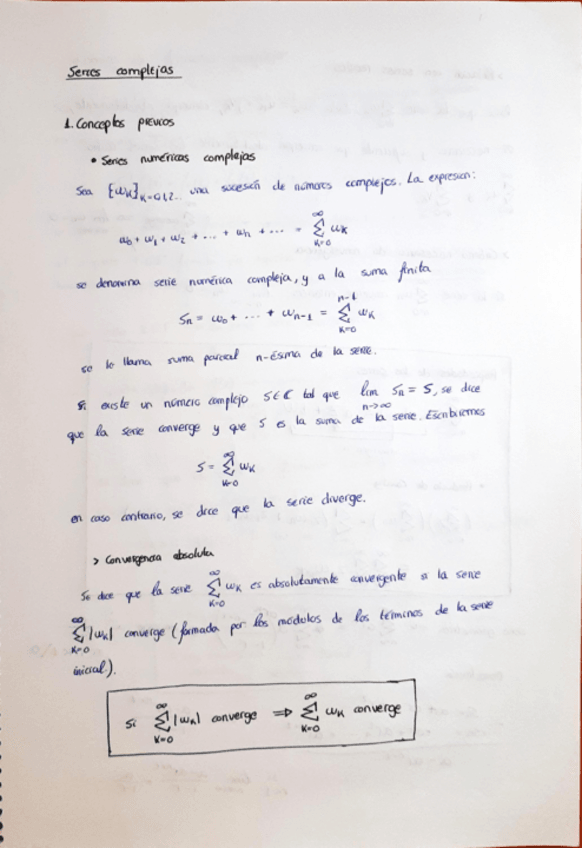 Series complejas
1. Conceptos previos
• Series numéricas complejas
Sea {ωk}k=0,1,2... una sucesión de números complejos. La expresión:
ω0 + ω1 + ω2 + ... + ωn + ... = ∑_{k=0}^{∞} ωk
se denomina serie numérica compleja, y a la suma finita
Sn = ω0 + ... + ωn-1 = ∑_{k=0}^{n-1} ωk
se lo llama suma parcial n-ésima de la serie.
Si existe un número complejo S∈ℂ tal que lim_{n->∞} Sn = S, se dice
que la serie converge y que S es la suma de la serie. Escribiremos
S = ∑_{k=0}^{∞} ωk
en caso contrario, se dice que la serie diverge.
> Convergencia absoluta
Se dice que la serie ∑_{k=0}^{∞} ωk es absolutamente convergente si la serie
∑_{k=0}^{∞} |ωk| converge (formada por los módulos de los términos de la serie
inicial).
Si ∑_{k=0}^{∞} |ωk| converge ⇒ ∑_{k=0}^{∞} ωk converge